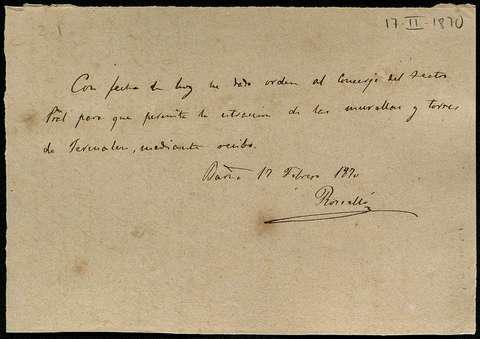 17-II-1870
Con fecha de hoy he dado orden al Conserje del Teatro
Pral para que permita la extraccion de las murallas y torres
de Jerusalen, mediante recibo.
Barna 17 Febrero 1870
Rosselló